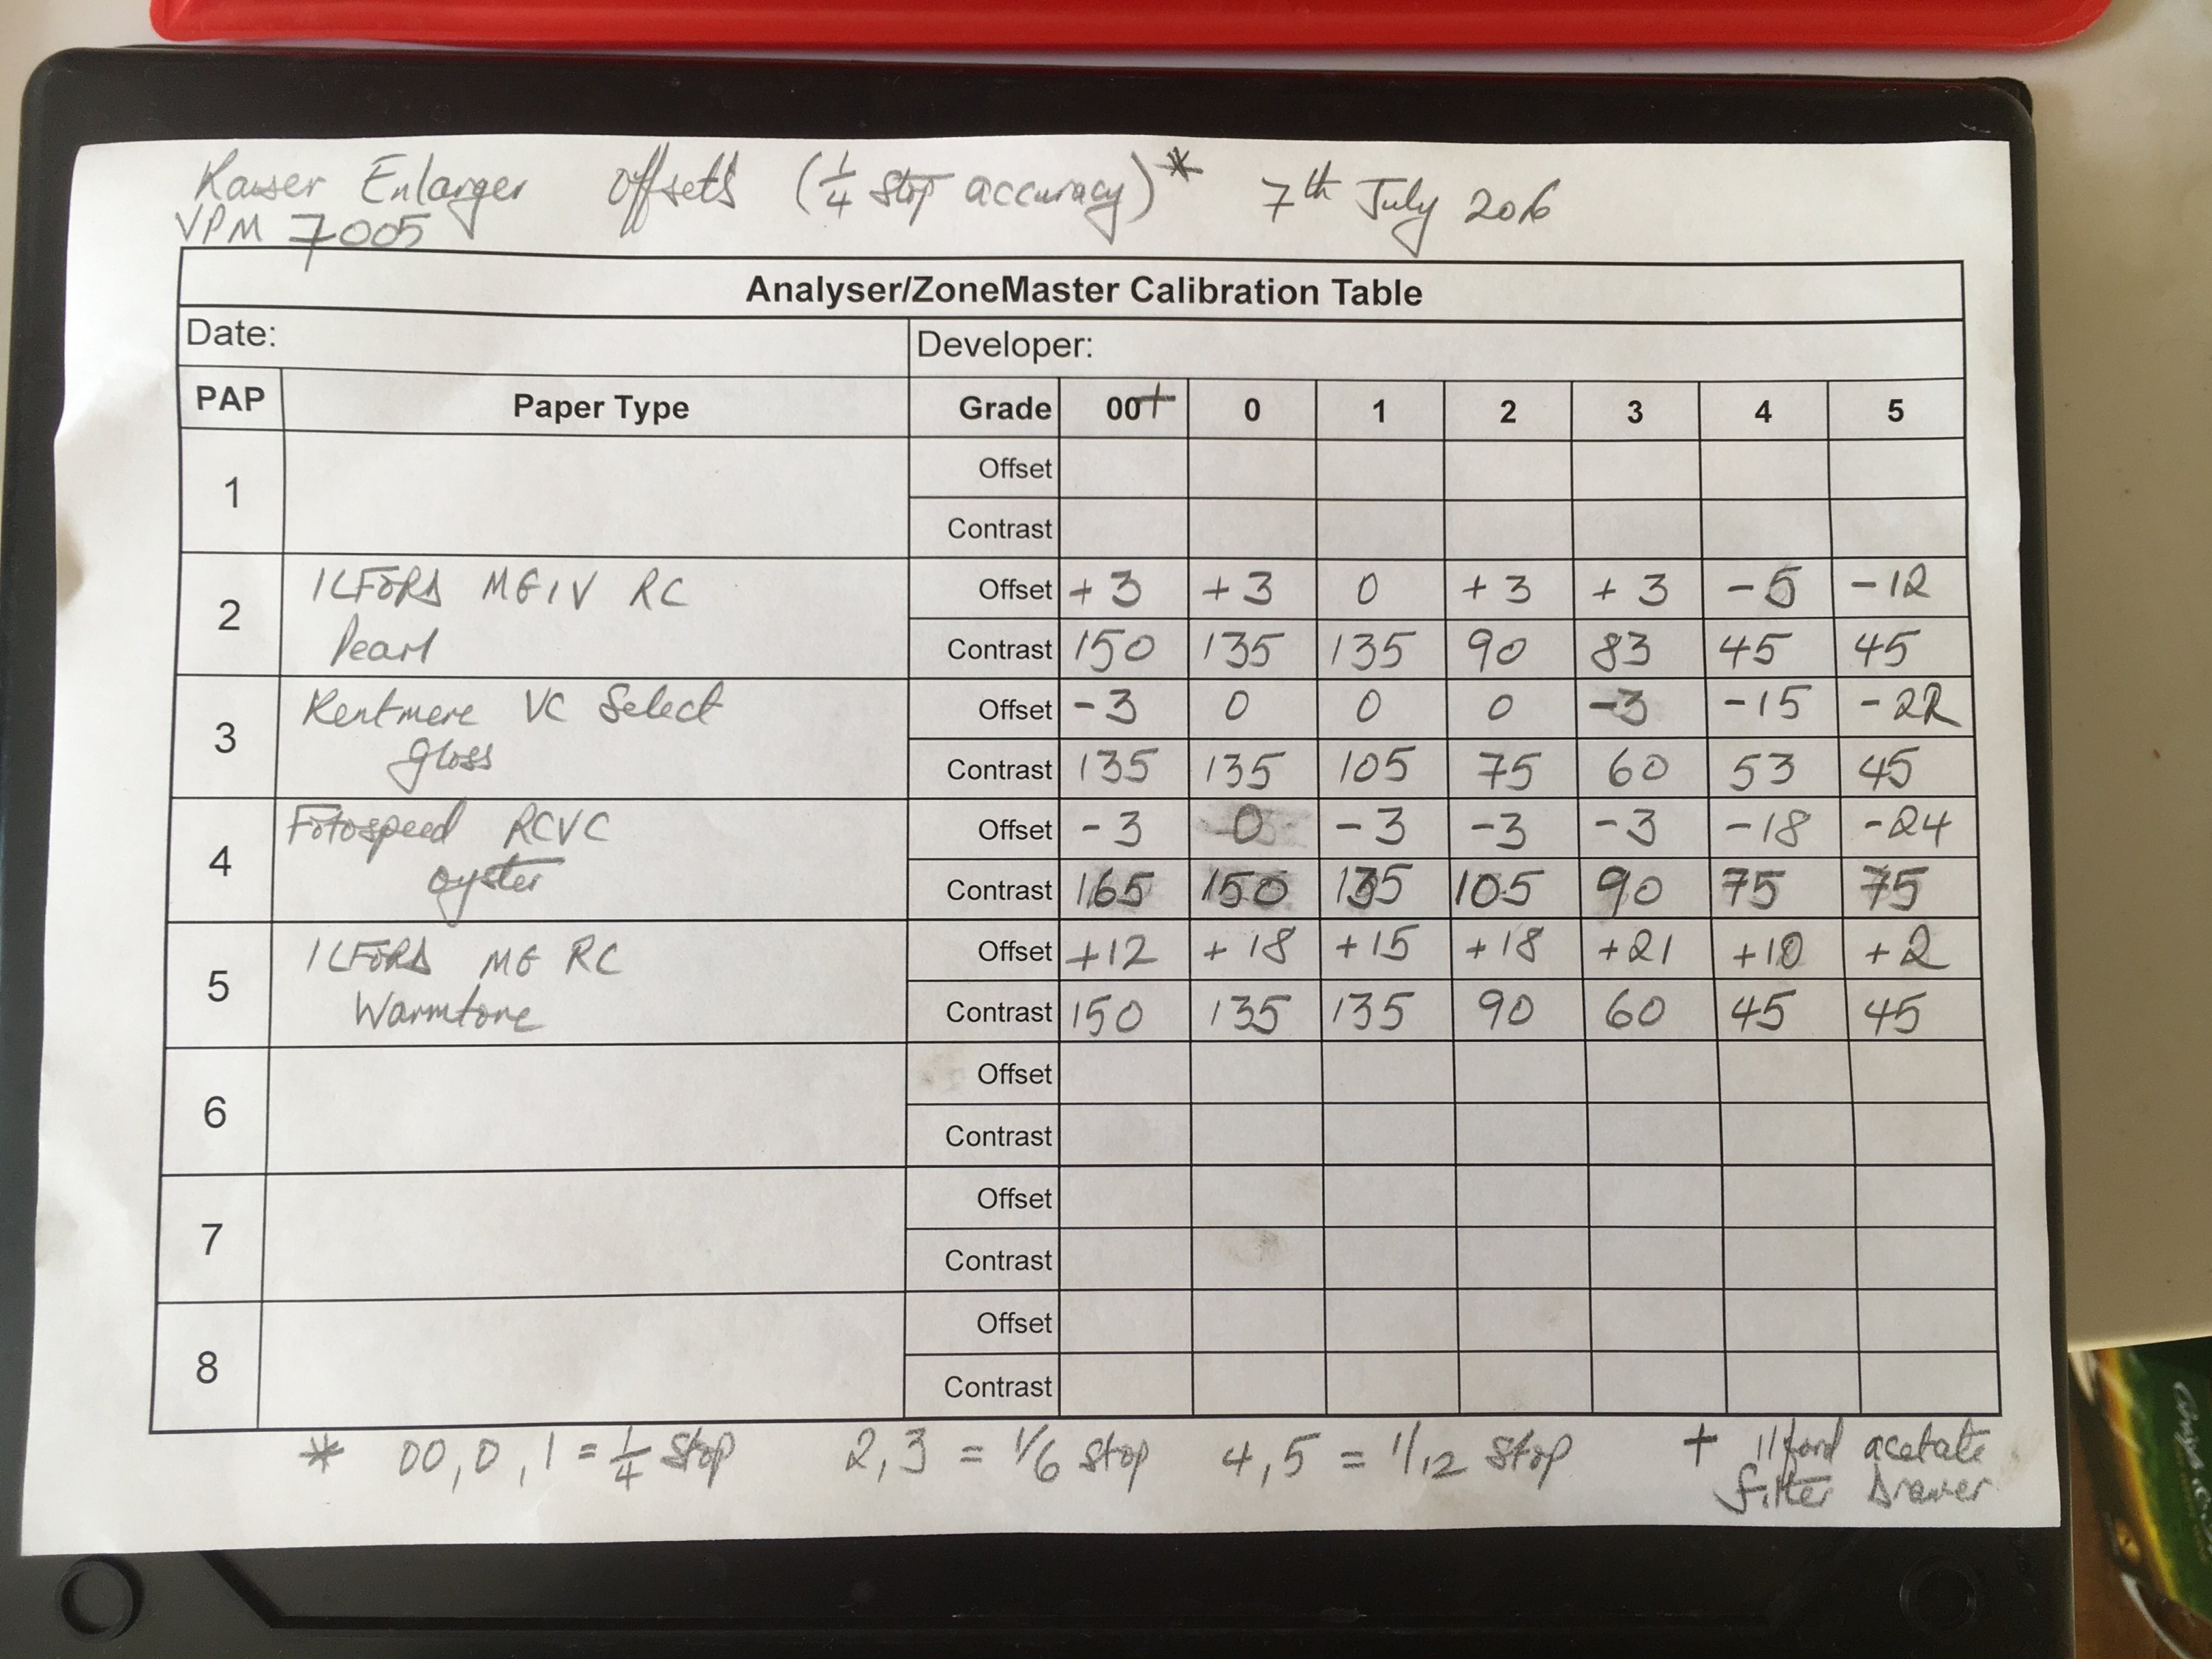 Kaiser Enlarger offsets (1/4 stop accuracy)* 7th July 2016
VPM 7005
Analyser/ZoneMaster Calibration Table
Date: Developer:
PAP Paper Type Grade 00+ 0 1 2 3 4 5
1 Offset
Contrast
2 ILFORD MGIV RC Offset +3 +3 0 +3 +3 -5 -12
Pearl Contrast 150 135 135 90 83 45 45
3 Kentmere VC Select Offset -3 0 0 0 -3 -15 -22
gloss Contrast 135 135 105 75 60 53 45
4 Fotospeed RCVC Offset -3 0 -3 -3 -3 -18 -24
oyster Contrast 165 150 135 105 90 75 75
5 ILFORD MG RC Offset +12 +18 +15 +18 +21 +10 +2
Warmtone Contrast 150 135 135 90 60 45 45
6 Offset
Contrast
7 Offset
Contrast
8 Offset
Contrast
* 00,0,1 = 1/4 stop 2,3 = 1/6 stop 4,5 = 1/12 stop + Ilford acetate
filter drawer